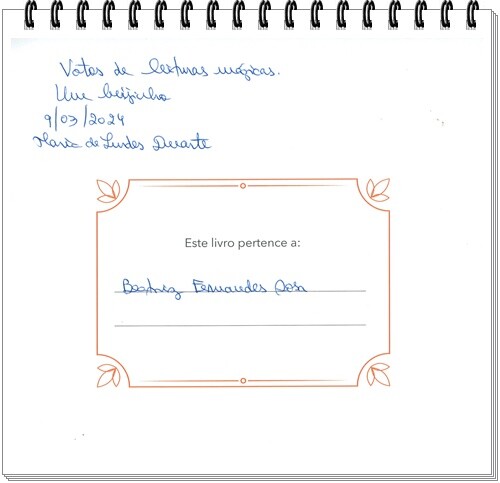 Votos de leituras mágicas.
Um beijinho
9/03/2024
Maria de Lurdes Duarte
Este livro pertence a:
Beatriz Fernandes Rosa